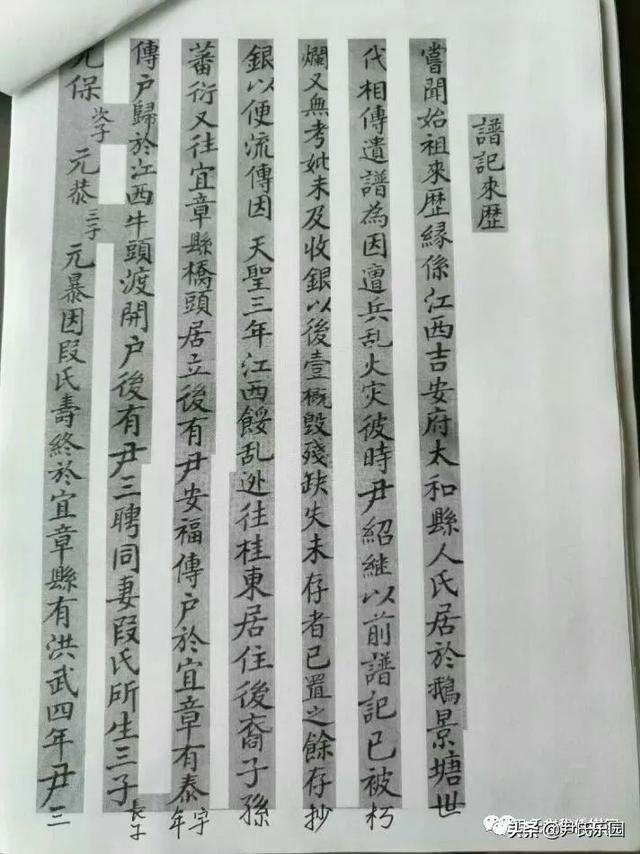 譜記來歷
嘗聞始祖來歷緣係江西吉安府太和縣人氏居於鵝景塘世
代相傳遺譜為因遭兵乱火灾彼時尹紹継以前譜記已被朽
爛又無考妣未及收銀以後壹概毀殘缺失未存者已置之餘存抄
銀以便流傳因 天聖三年江西餒乱迯往桂東居住後裔子孫
蕃衍又往宜章縣橋頭居立後有尹安福傳户於宜章有泰字年
傳户歸於江西牛頭渡開户後有尹三聘同妻段氏所生三子長子
元保次子元恭三子元暴因段氏壽終於宜章縣有洪武四年尹三
头条@尹氏乐园